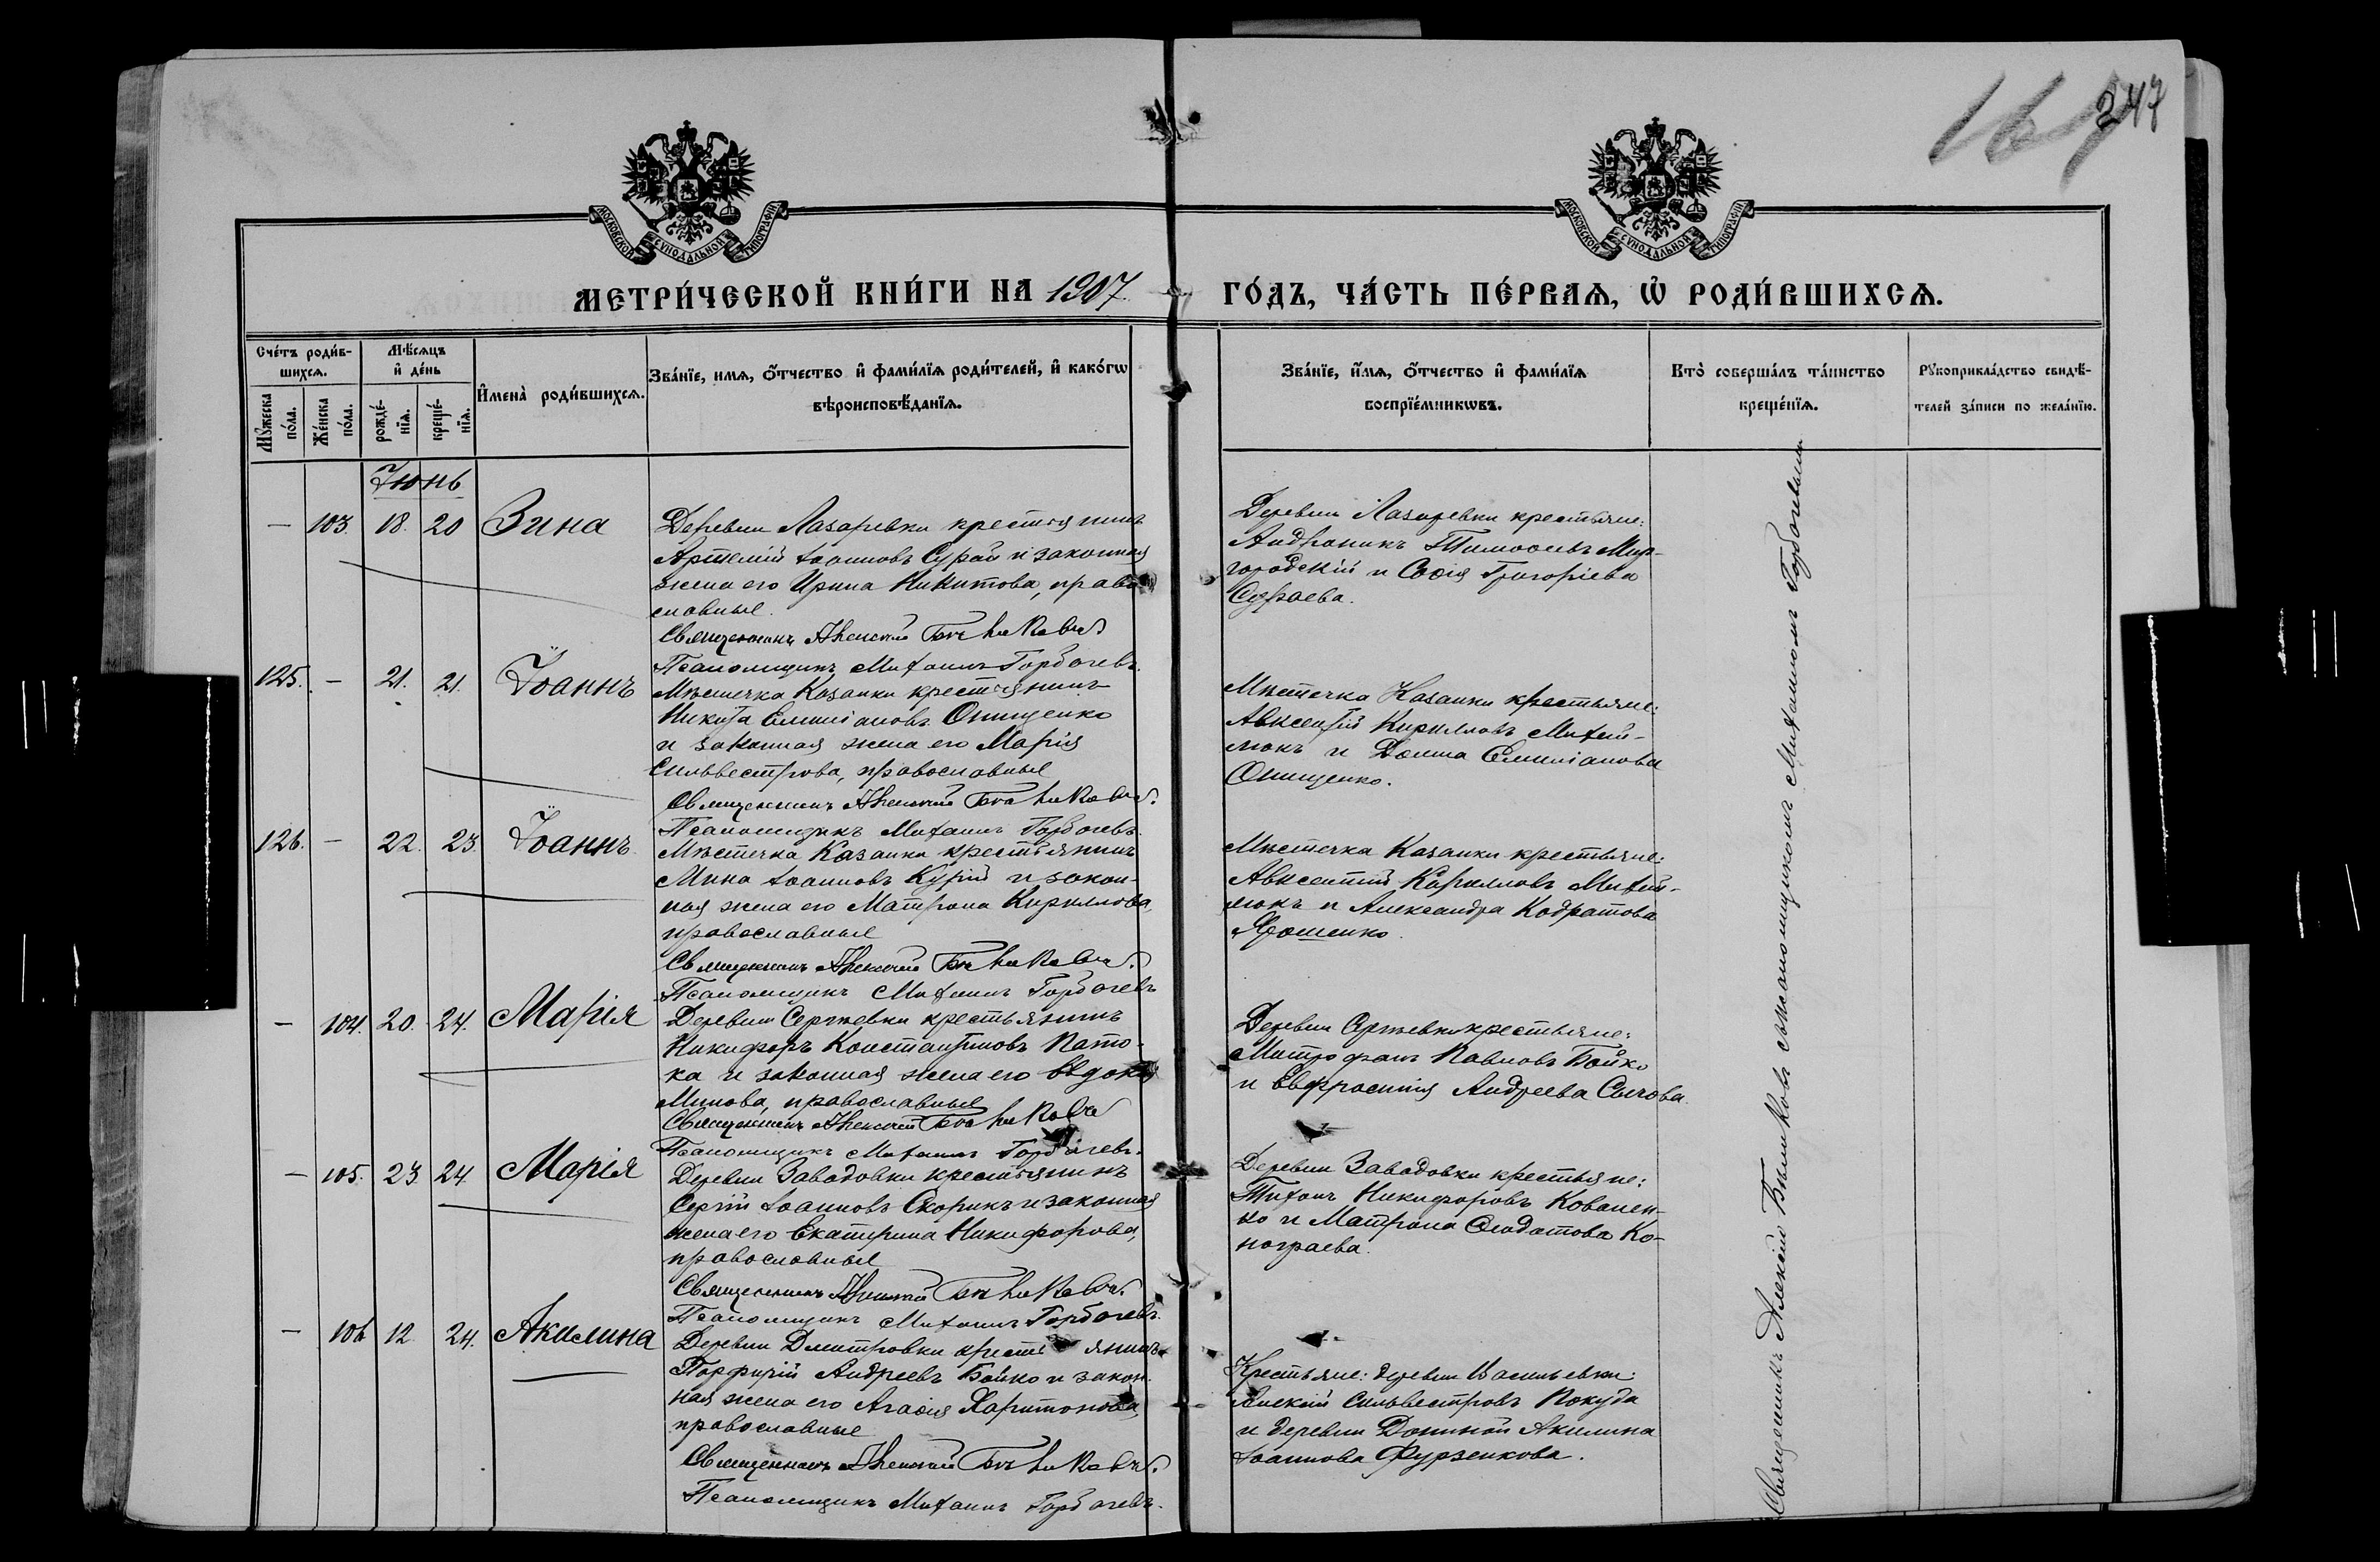 247
167
МОСКОВСКОЙ СѴНОДАЛЬНОЙ ТИПОГРАФІИ
МОСКОВСКОЙ СѴНОДАЛЬНОЙ ТИПОГРАФІИ
МЕТРИ́ЧЕСКОЙ КНИ́ГИ НА 1907 ГО́ДЪ, ЧА́СТЬ ПЕ́РВАѦ, Ѽ РОДИ́ВШИХСѦ.
Сче́тъ роди́в-
шихсѧ.
Мꙋжеска по́ла.
Же́нска по́ла.
Мѣ́сѧцъ
и҆ де́нь
рожде́-
нїѧ.
креще́-
нїѧ.
И҆мена̀ роди́вшихсѧ.
Зва́нїе, имѧ, ѻ҆́тчество и҆ фами́лїѧ роди́телей, и҆ како́гѡ
вѣроисповѣ́данїѧ.
Зва́нїе, и҆́мѧ, ѻ҆́тчество и҆ фами́лїѧ
воспрїе́мникѡвъ.
Кто̀ соверша́лъ та́инство
креще́нїѧ.
Рꙋкоприкла́дство свидѣ́-
телей за́писи по жела́нїю.
Іюнь
— 103. 18. 20 Зина
Деревни Лазаревки крестьянинъ
Артемій Іоанновъ Сурай и законная
жена его Ирина Никитова, право
славные.
Священникъ Алексій Бѣликовъ
Псаломщикъ Михаилъ Горбачевъ.
Деревни Лазаревки крестьяне:
Андроникъ Тимоѳеевъ Мир-
городскій и Софія Григоріева
Сураева.
125. — 21. 21. Іоаннъ
Мѣстечка Казанки крестьянинъ
Никита Емиліановъ Онищенко
и законная жена его Марія
Сильвестрова, православные
Священникъ Алексій Бѣликовъ.
Псаломщикъ Михаилъ Горбачевъ.
Мѣстечка Казанки крестьяне:
Авксентій Кирилловъ Михай-
люкъ и Домна Емиліанова
Онищенко.
126. — 22. 23. Іоаннъ
Мѣстечка Казанки крестьянинъ
Мина Іоанновъ Курій и закон-
ная жена его Матрона Кириллова,
православные
Священникъ Алексій Бѣликовъ.
Псаломщикъ Михаилъ Горбачевъ
Мѣстечка Казанки крестьяне:
Авксентій Кирилловъ Михай-
люкъ и Александра Кодратова
Ярошенко.
— 104. 20. 24. Марія
Деревни Сергѣевки крестьянинъ
Никифоръ Константиновъ Пато-
ка и законная жена его Евдокія
Минова, православные
Священникъ Алексій Бѣликовъ
Псаломщикъ Михаилъ Горбачевъ.
Деревни Сергѣевки крестьяне:
Митрофанъ Павловъ Бойко
и Евфросинія Андреева Сычова.
— 105. 23. 24. Марія
Деревни Завадовки крестьянинъ
Сергій Іоанновъ Скорикъ и законная
жена его Екатерина Никифорова,
православные
Священникъ Алексій Бѣликовъ.
Псаломщикъ Михаилъ Горбачевъ.
Деревни Завадовки крестьяне:
Тихонъ Никифоровъ Ковален-
ко и Матрона Ѳеодотова Ко-
нограева.
— 106 12. 24. Акилина
Деревни Дмитровки крестьянинъ
Порфирій Андреевъ Бойко и закон-
ная жена его Агаѳія Харитонова,
православные
Священникъ Алексій Бѣликовъ.
Псаломщикъ Михаилъ Горбачевъ.
Крестьяне: деревни Васильевки:
Алексій Сильвестровъ Покуда
и деревни Дониной Акилина
Іоаннова Фурзенкова.
Священникъ Алексій Бѣликовъ съ псаломщикомъ Михаиломъ Горбачевымъ